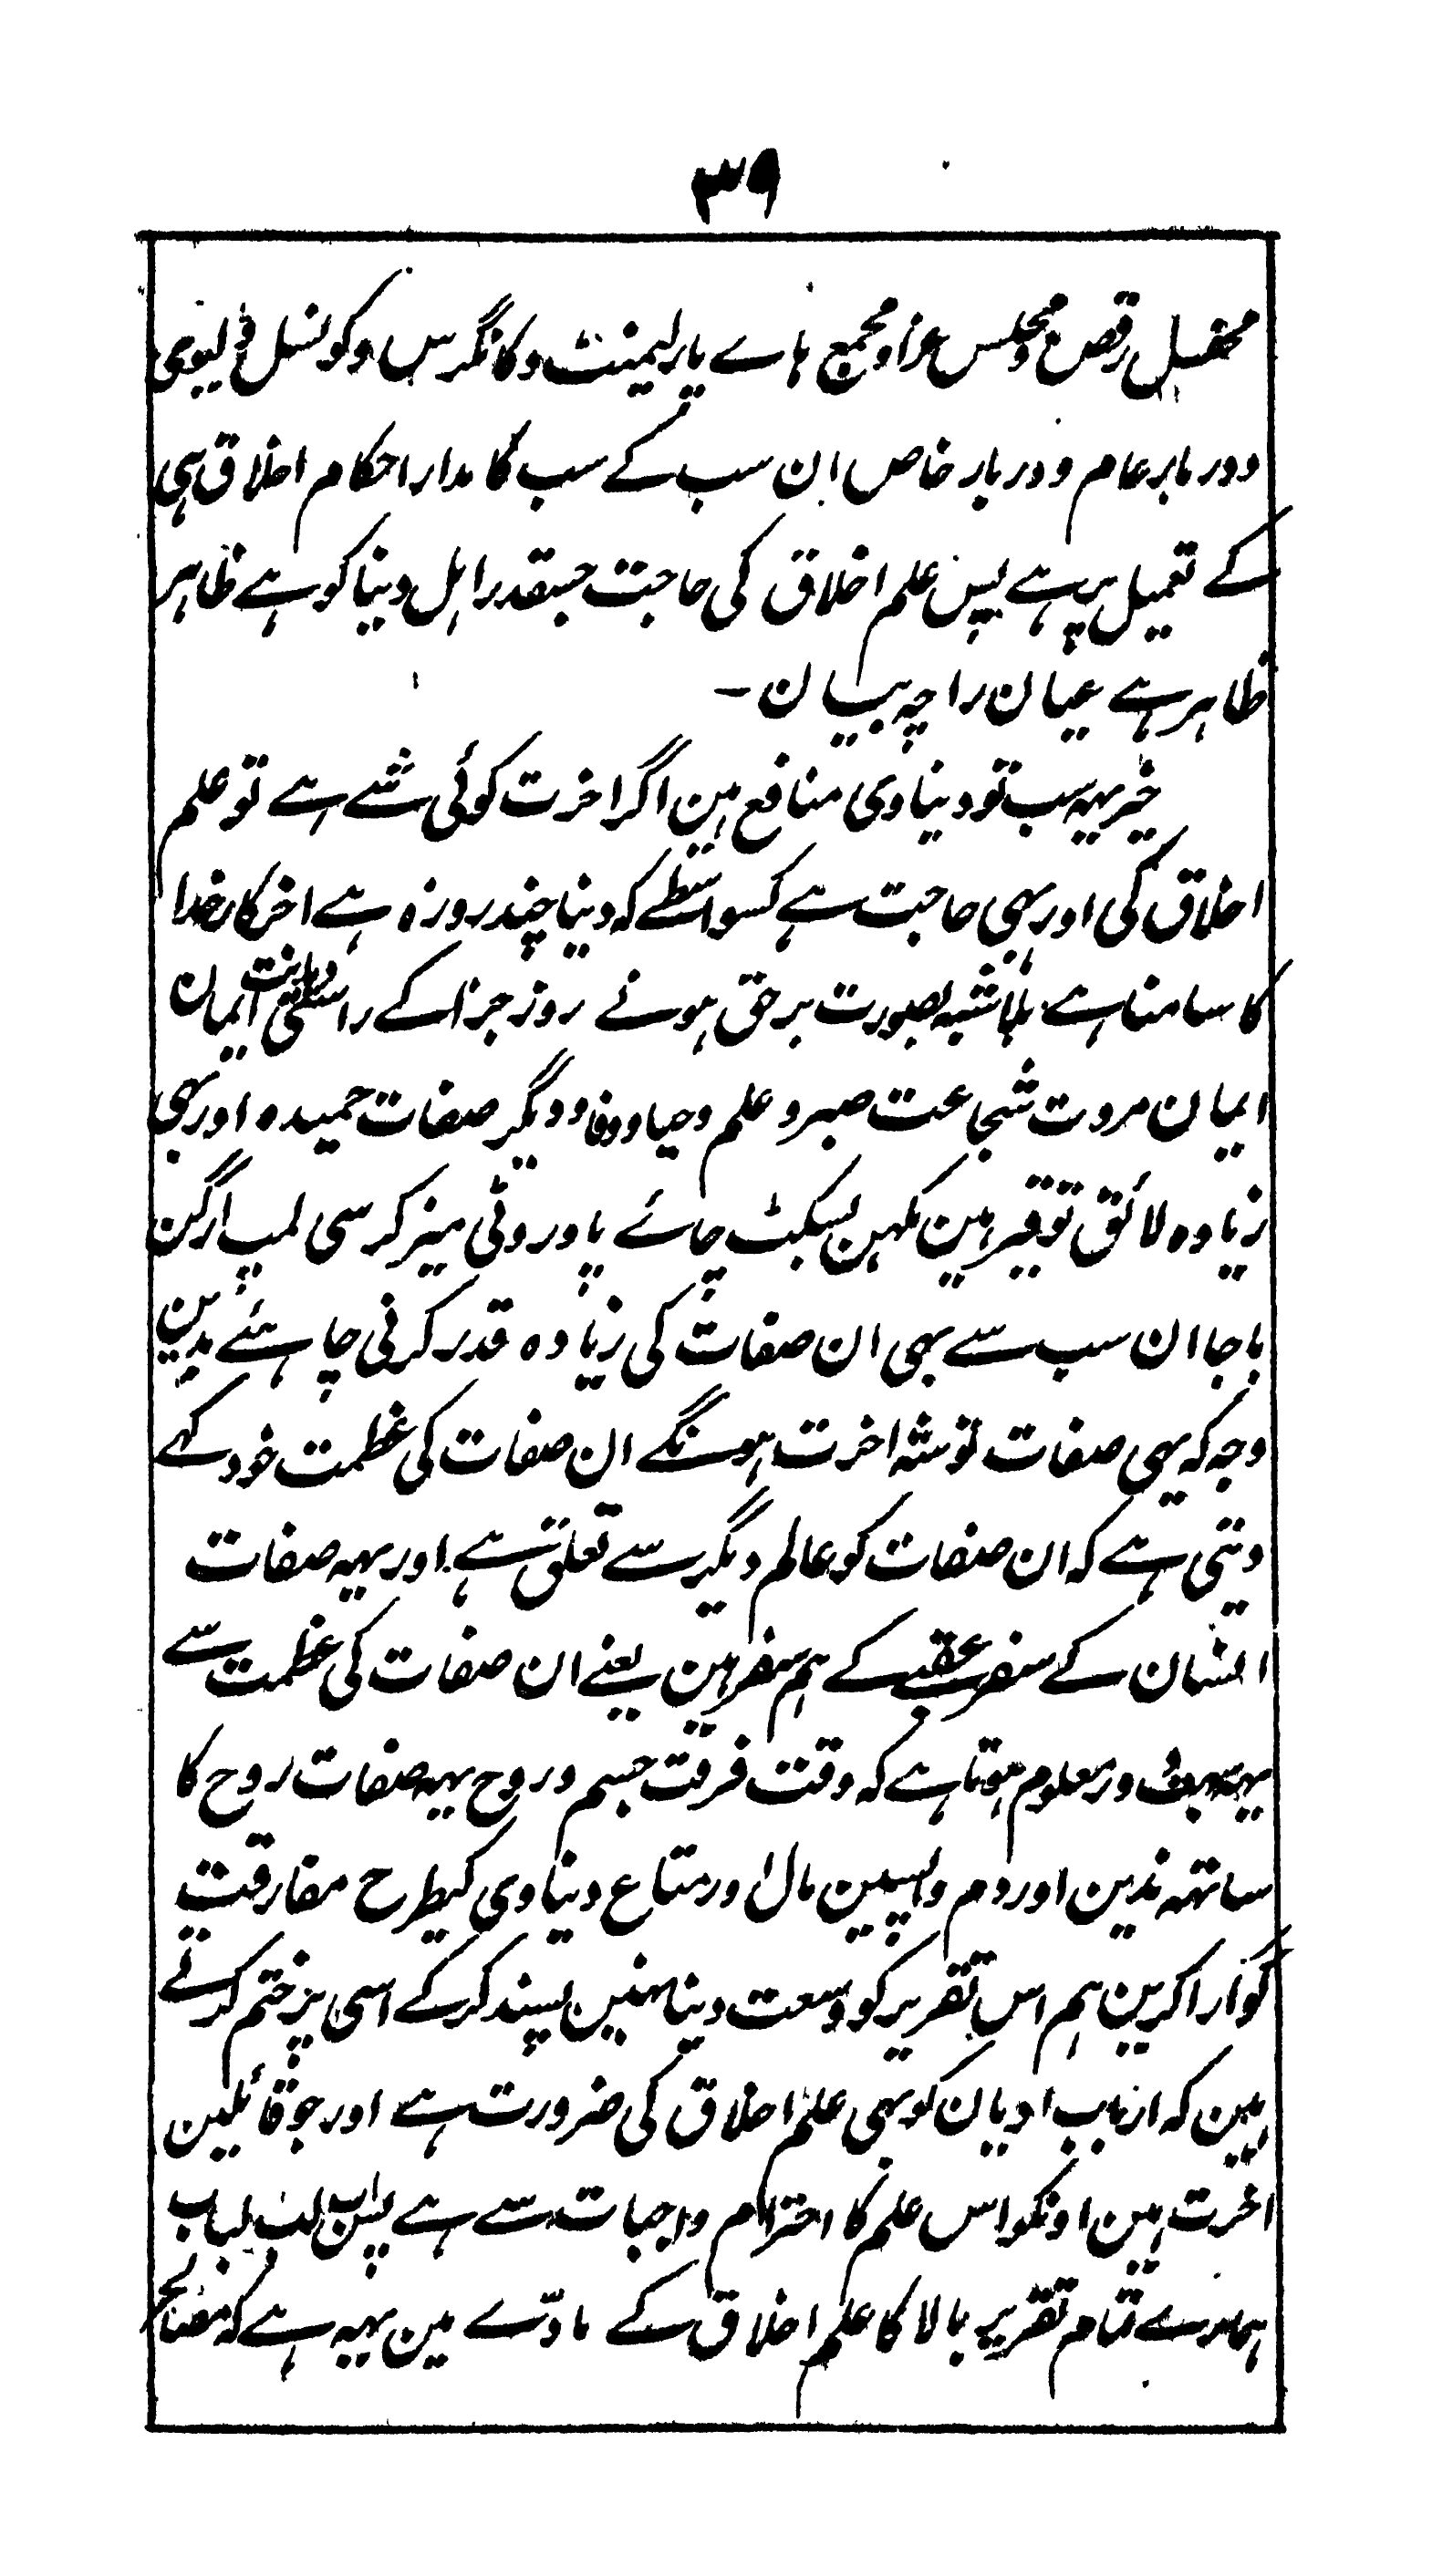 ٣٩
محفل رقص و مجلس عزا و مجمع ہاے پارلیمنٹ و کانگرس و کونسل و لیوی
و دربار عام و دربار خاص ان سب کے سب کا مدار احکام اخلاق ہی
کے تعمیل پر ہے پس علم اخلاق کی حاجت جسقدر اہل دینا کو ہے ظاہر
ظاہر ہے عیان را چہ بیان -
خیر یہہ سب تو دیناوی منافع ہین اگر اخرت کوئی شے ہے تو علم
اخلاق کی اور بہی حاجت ہے کسواسطے کہ دینا چند روزہ ہے اخر کار خدا
کا سامنا ہے بلاشبہ بصورت برحق ہونے روز جزا کے راستی دیانت ایمان
ایمان مروت شجاعت صبر و علم و حیا و وفا و دیگر صفات حمیدہ اور بہی
زیادہ لائق توقیر ہین مکہن بسکٹ چاے پاوروٹی میز کرسی لمپ ارگن
باجا ان سب سے بہی ان صفات کی زیادہ قدر کرنی چاہئے بدین
وجہ کہ یہی صفات توشہ اخرت ہونگے ان صفات کی عظمت خود کہے
دیتی ہے کہ ان صفات کو عالم دیگر سے تعلق ہے اور یہہ صفات
انسان کے سفر عقبے کے ہم سفر ہین یعنے ان صفات کی عظمت سے
یہہ معلوم ہوتا ہے کہ وقت فرقت جسم و روح یہہ صفات روح کا
ساتہہ ندین اور دم واپسین مال اور متاع دیناوی کیطرح مفارقت
گوارا کرین ہم اس تقریر کو وسعت دینا نہین پسند کرکے اسی پر ختم کرتے
ہین کہ ارباب ادیان کو بہی علم اخلاق کی ضرورت ہے اور جو قائلین
اخرت ہین اونکو اس علم کا احترام واجبات سے ہے پس لب لباب
ہمارے تمام تقریر بالا کا علم اخلاق کے مادّے مین یہہ ہے کہ مصالح